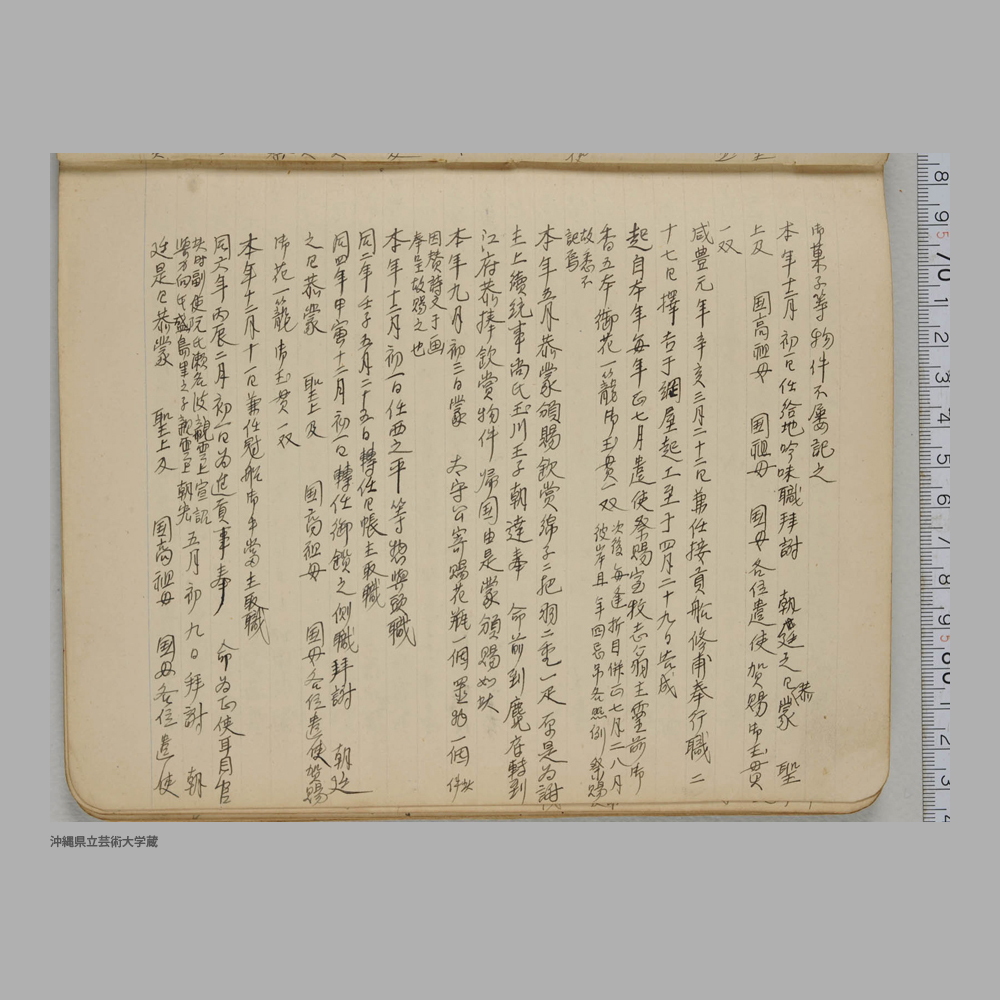 御菓子等物件不屡記之
本年十二月初一日仕給地吟味職拝謝 朝廷之日恭蒙 聖
上及 国高祖母 国祖母 国母各位遣使賀賜御玉貫
一双
咸豊元年辛亥三月二十二日兼任接貢船修甫奉行職二
十七日擇吉于綱屋起工至于四月二十九日告成
起自本年毎年正七月遣使祭賜宝牧志翁主霊前御
香五本御花一籠御玉貫一双 次後毎逢折目併正七月二八月
彼岸且年四忌吊各照例祭賜
故悉不
記焉
本年五月恭蒙頒賜欽賞綿子二把羽二重一疋原是為謝
主上續統事尚氏玉川王子朝達奉 命前到麑府轉到
江府恭捧欽賞物件帰国由是蒙頒賜如此
本年九月初三日蒙 太守公寄賜花瓶一個墨壺一個 此件
因賛詩文于画
奉呈故賜之也
本年十二月初一日任西之平等惣與頭職
同二年壬子五月二十五日轉任日帳主取職
同四年甲寅十二月初一日轉任御鎖之側職拝謝 朝廷
之日恭蒙 聖上及 国高祖母 国母各位遣使賀賜
御花一籠御玉貫一双
本年十二月十一日兼任冠船御手當主取職
同六年丙辰二月初一日為進貢事奉 命為正使耳目官
此時副使阮氏瀬名波親雲上宣詔
與力向氏盛島里之子親雲上朝先 五月初九日拝謝 朝
廷是日恭蒙 聖上及 国高祖母 国母各位遣使
8 9 5 70 1 2 3 4 5 6 7 8 9 5 80 1 2 3 4
沖縄県立芸術大学蔵